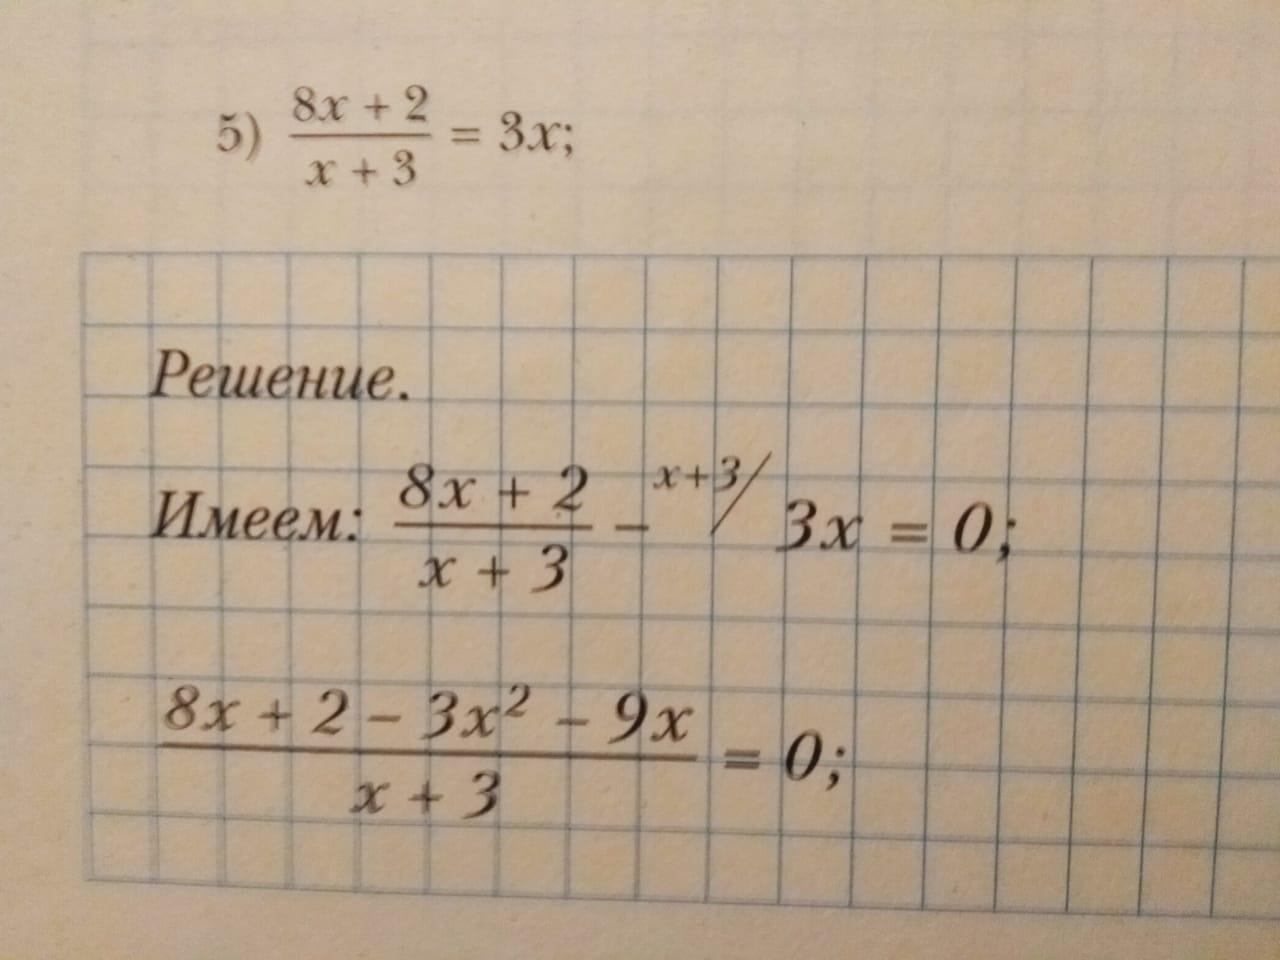 5) (8x + 2)/(x + 3) = 3x;
Решение.
Имеем: (8x + 2)/(x + 3) − ˣ⁺³⁄ 3x = 0;
(8x + 2 − 3x² − 9x)/(x + 3) = 0;